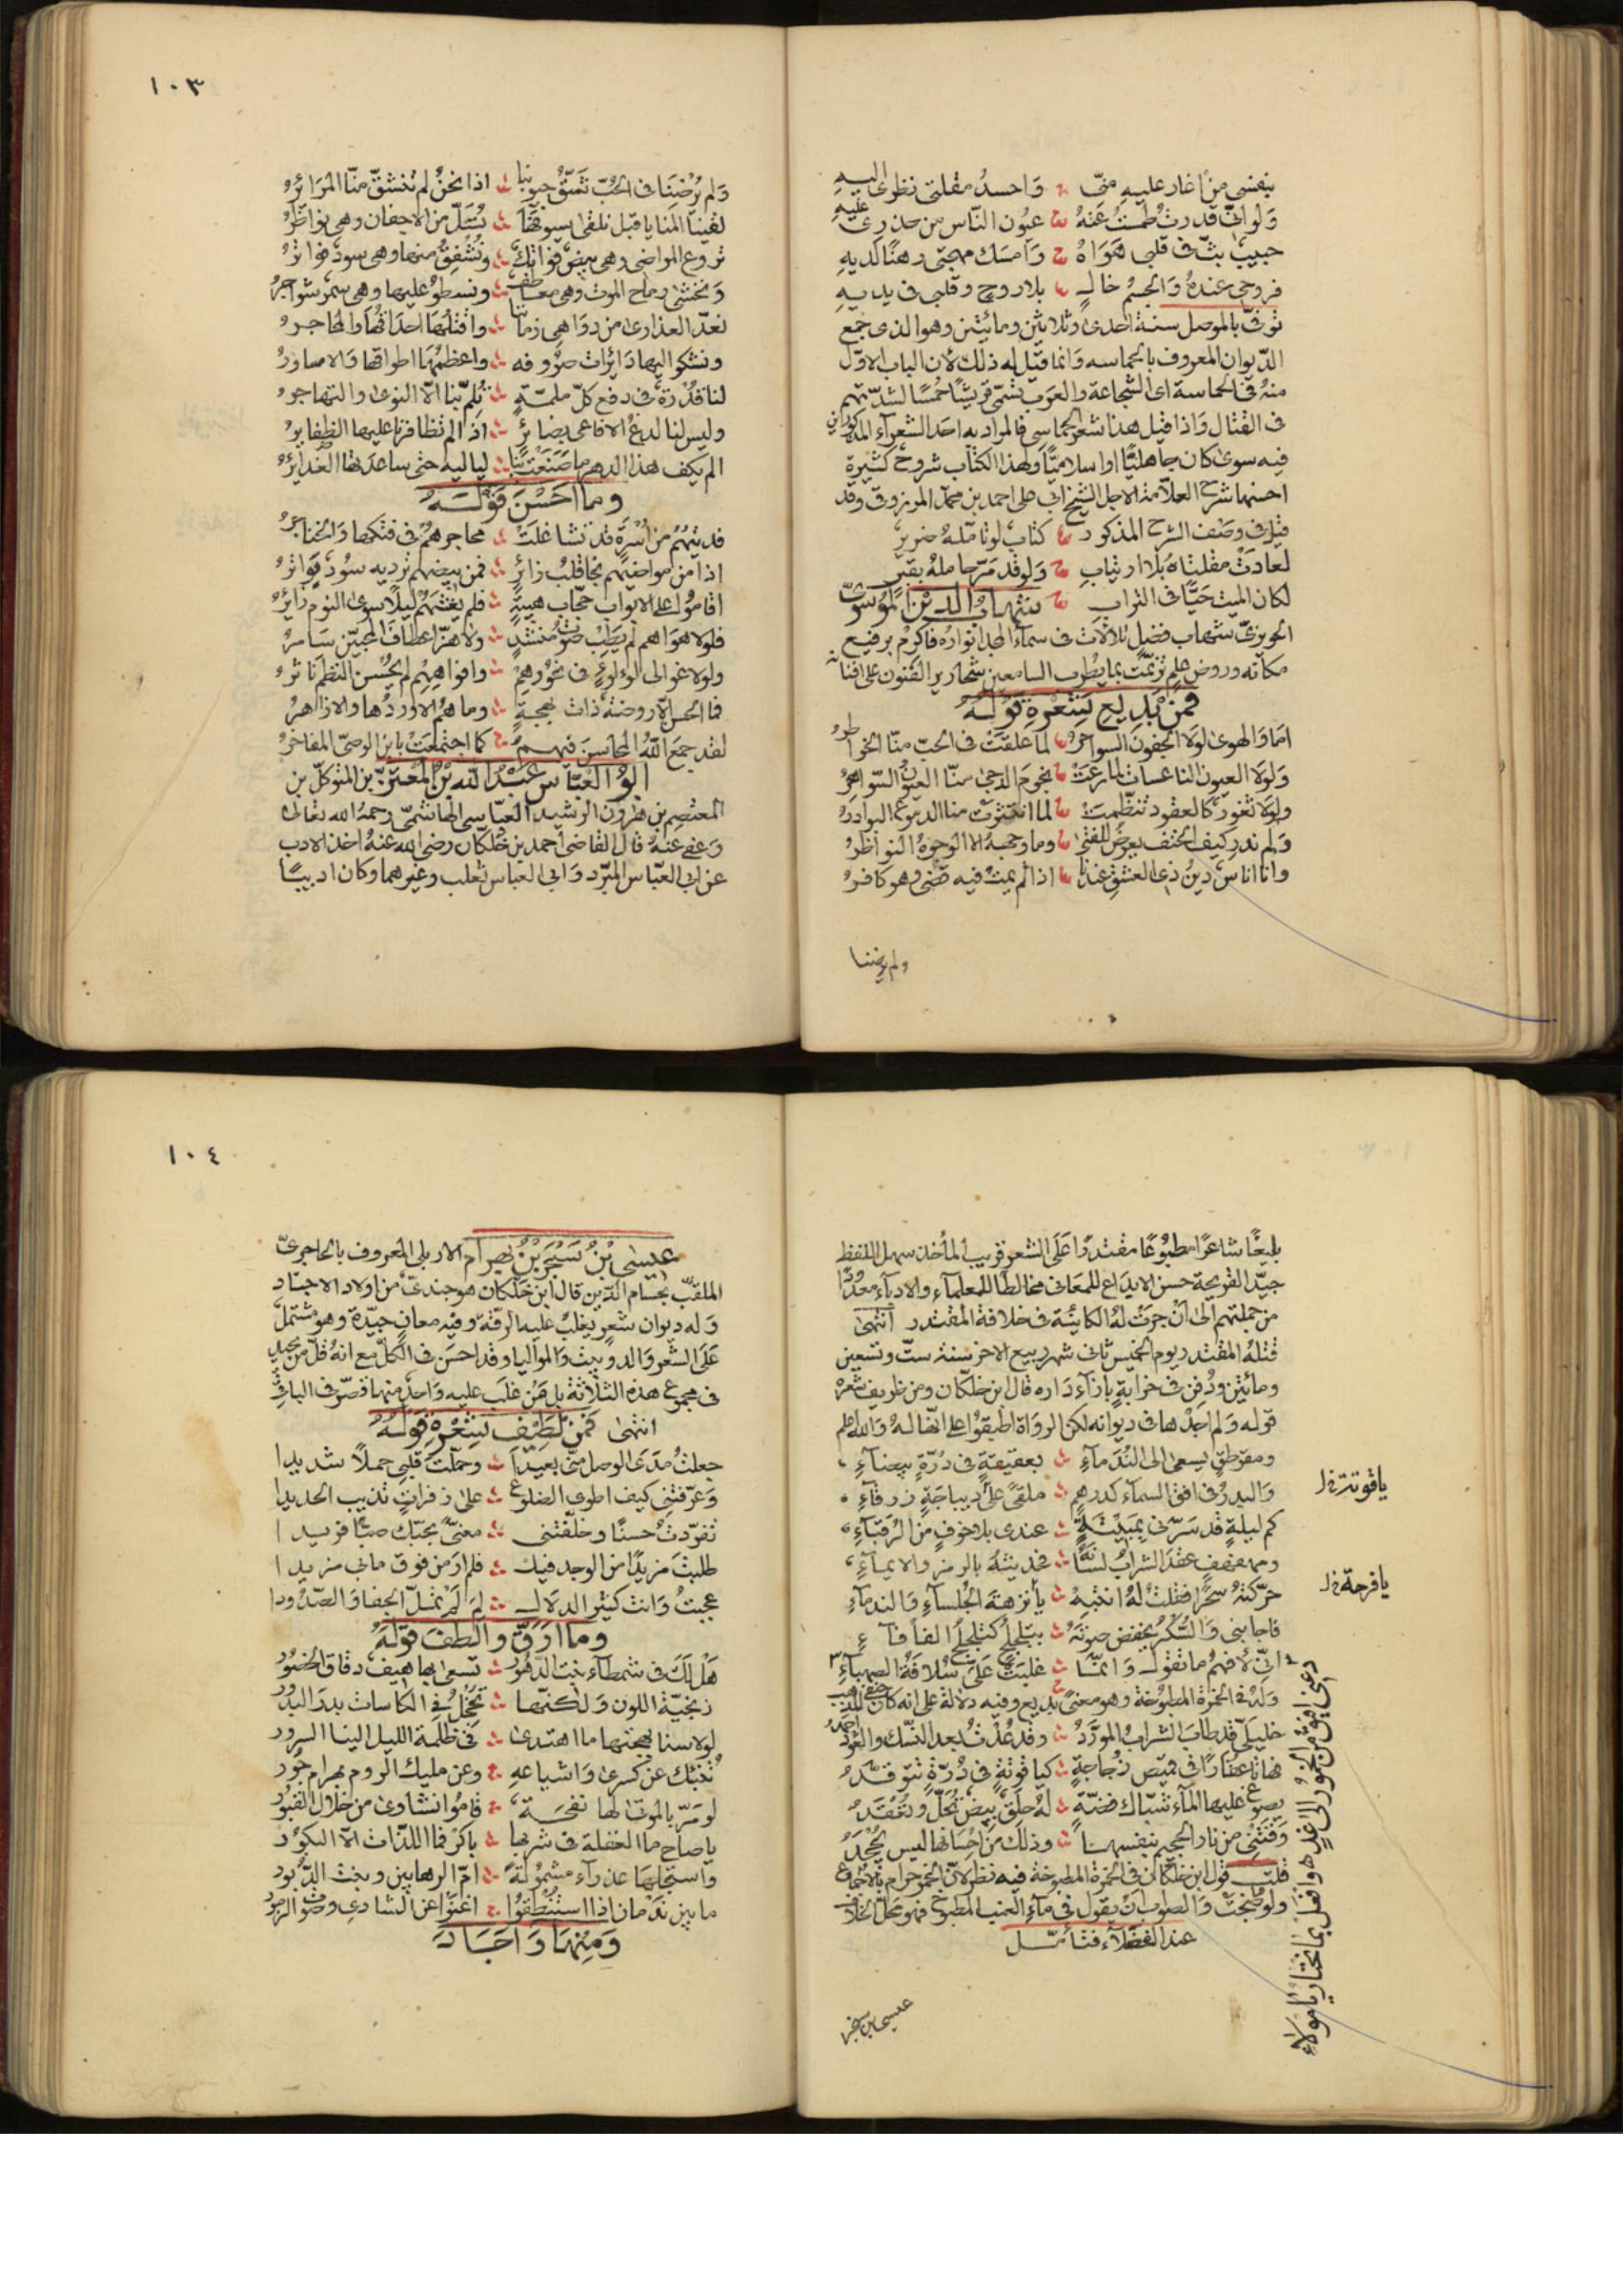 بنفسي من اغار عليه منّي واحسد مقلتي نظري اليه
ولو انّي قدرت طمست عنه عيون النّاس من حذري عليه
حبيب بثّ في قلبي هواه وامسك مهجتي رهنا لديه
فروحي عنده والجسم خالٍ بلا روح وقلبي في يديه
توفّي بالموصل سنة احدى وثلاثين ومائتين وهو الذي جمع
الدّيوان المعروف بالحماسه وانما قيل له ذلك لان الباب الاوّل
منه في الحماسة اي الشجاعة والعرب تسمّي قريشا حُمسا لشدّتهم
في القتال واذا قيل هذا شعر الحماسي فالمراد به احد الشعرآء المذكورين
فيه سوى كان جاهليّا او اسلاميّا ولهذا الكتاب شروح كثيرة
احسنها شرح العلاّمة الاجل الشيخ ابي علي احمد بن محمد المرزوقي وقد
قيل في وصف الشرح المذكور كتاب لو تأمّله ضرير
لعادت مقلتاه بلا ارتياب ولو قد مرّ حامله بقبر
لكان الميت حيّا في التراب شهاب الدين الموسوي
الحويزيّ شهاب فضل تلألأت في سمآء المجد انواره فاكرم برفيع
مكانه وروض علم ترنّمت بما يطرب السامعين شحارير الفنون على افنانه
فمن بديع شعره قوله
اما والهوى لولا الجفون السواحر لما علقت في الحبّ منّا الخواطر
ولولا العيون الناعسات لما رعت نجوم الدجى منّا العيون السّواهر
ولولا ثغور كالعقود تنظّمت لما انتثرت منا الدموع البوادر
ولم ندر كيف الحتف يعرض للفتى وما وجهه الا الوجوه النواظر
وانا اناس دين ذي العشق عندنا اذا لم يمت فيه قضى وهو كافر
ولم يرضنا
١٠٣
ولم يُرضِنا في الحبّ شقّ جيوبنا اذا نحن لم تنشقّ منّا المرائر
لقينا المنايا قبل نلقى سيوفها تُسلّ من الاجفان وهي نواظر
نروع المواضي وهي بيض فواتك ونشفق منها وهي سود فواتر
ونخشى رماح الموت وهي معاطف ونسطو عليها وهي سمر شواجر
نعدّ العذارى من دواهي زماننا واقتلها احداقها والمحاجر
ونشكو اليها دايرات صروفه واعظمها اطواقها والاساور
لنا قدرة في دفع كلّ ملمّة تُلمّ بنا الاّ النوى والتهاجر
وليس لنا لدغ الافاعي بضائر اذا لم تظافرنا عليها الظفاير
الم يكف هذا الدهر ما صنعت بنا لياليه حتى ساعدتها الغدائر
وما احسن قوله
فديتهم من اسرة قد تشاغلت محاجرهم في فتكها والخناجر
اذا من مواضيهم نجا قلب زائر فمن بيضهم ترديه سود فواتر
اقاموا على الابواب حجّاب هيبة فلم يغشهم ليلا سوى النوم زائر
فلولا هواهم لم يطب صوت منشد ولا هزّ اعطاف المحبين سامر
ولولا غوالي لؤلؤ في نحورهم وافواههم لم يحسن النظم ناثر
فما الحسن الا روضة ذات بهجة وما هم الا وردها والازاهر
لقد جمع اللّه المحاسن فيهم كما اجتمعت بابن الوصيّ المفاخر
ابو العبّاس عبد الله بن المعتزّ بن المتوكّل بن
المعتصم بن هٰرون الرشيد العبّاسي الهاشميّ رحمه الله تعالى
وعفى عنه قال القاضي احمد بن خلّكان رضي الله عنه اخذ الادب
عن ابي العبّاس المبرّد وابي العباس ثعلب وغيرهما وكان اديبا
بليغا شاعرا مطبوعا مقتدرا على الشعر قريب المأخذ سهل اللفظ
جيّد القريحة حسن الابداع للمعاني مخالطا للعلمآء والادبآء معدودا
من جملتهم الى ان جرت له الكائنة في خلافة المقتدر انتهى
قتله المقتدر يوم الخميس ثاني شهر ربيع الاخر سنة ستّ وتسعين
ومائتين ودفن في خرابة بازآء داره قال ابن خلّكان ومن ظريف شعره
قوله ولم اجدها في ديوانه لكن الرواة اطبقوا على انّها له والله اعلم
ومقرطق يسعى الى الندمآء بعقيقة في درّة بيضآء
والبدر في افق السمآء كدرهم ملقىً على ديباجة زرقآء
كم ليلة قد سرّني بمبيته عندي بلا خوف من الرقبآء
ومهفهف عقد الشراب لسانه فحديثه بالرمز والايمآء
حرّكته سحرا فقلت له انتبه يا نزهة الجلسآء والندمآء
فاجابني والسّكر يخفض صوته بتلجلج كتلجلج الفأفآء
انّي لأفهم ما تقول وانّما غلبت عليّ سلافة الصهبآء
وله في الخمرة المطبوخة وهو معنىً بديع وفيه دلالة على انه كان حنفي المذهب
خليليّ قد طاب الشراب المورّد وقد عدت بعد النّسك والعود احمد
فهاتا عقارا في قميص زجاجة كياقوتة في درّة تتوقّد
يصوغ عليها المآء شبّاك فضّة له حلق بيض تحلّ وتعقد
وقتني من نار الجحيم بنفسها وذلك من احسانها ليس يجحد
قلت قول ابن خلّكان في الخمرة المطبوخة فيه نظر لانّ الخمر حرام بالاجماع
ولو طبخت والصواب ان يقول في مآء العنب المطبوخ فهو محلّ الخلاف
عند الفضلآء فتأمّل
ياقوتة خ ل
يا فرحة خ ل
دعني افيق من الخمور الى غدٍ وافعل بما تختار يا مولاءِ
عيسى بن سنجر
١٠٤
عيسى بن سنجر بن بهرام الاربلي المعروف بالحاجريّ
الملقّب بحسام الدّين قال ابن خلّكان هو جنديّ من اولاد الاجناد
وله ديوان شعر يغلب عليه الرقّة وفيه معان جيّدة وهو مشتمل
على الشعر والدوبيت والمواليا وقد احسن في الكلّ مع انه قلّ من يجيد
في مجموع هذه الثلاثة بل من غلب عليه واحد منها قصّر في الباقي
انتهى فمن لطيف شعره قوله
جعلت مدى الوصل منّي بعيدا وحمّلت قلبي حملا شديدا
وعرّفتني كيف اطوي الضلوع على زفرات تذيب الحديدا
تفرّدت حسنا وخلّفتني معنّىً بحبّك صبّا فريدا
طلبت مزيدا من الوجد فيك فلم ار من فوق ما بي مزيدا
عجبت وانت كثير الدلال لِمَ لَم تملّ الجفا والصّدودا
وما ارقّ والطف قوله
هل لك في شمطآء بنت الدّهور تسعى بها هيف دقاق الخصور
زنجيّة اللون ولكنّها تخجل في الكاسات بدر البدور
لولا سنا بهجتها ما اهتدى في ظلمة الليل الينا السرور
تنبئك عن كسرى واشياعه وعن مليك الروم بهرام جور
لو مرّ بالموتى لها نفحة قاموا نشاوى من خلال القبور
يا صاح ما الغفلة في شربها باكر فما اللذّات الاّ البكور
واستجلها عذرآء مشمولة امّ الرهابين وبنت الدّبور
ما بين ندمان اذا استنطقوا اغنوا عن الشادي وضرب الزمور
ومنها واجاد